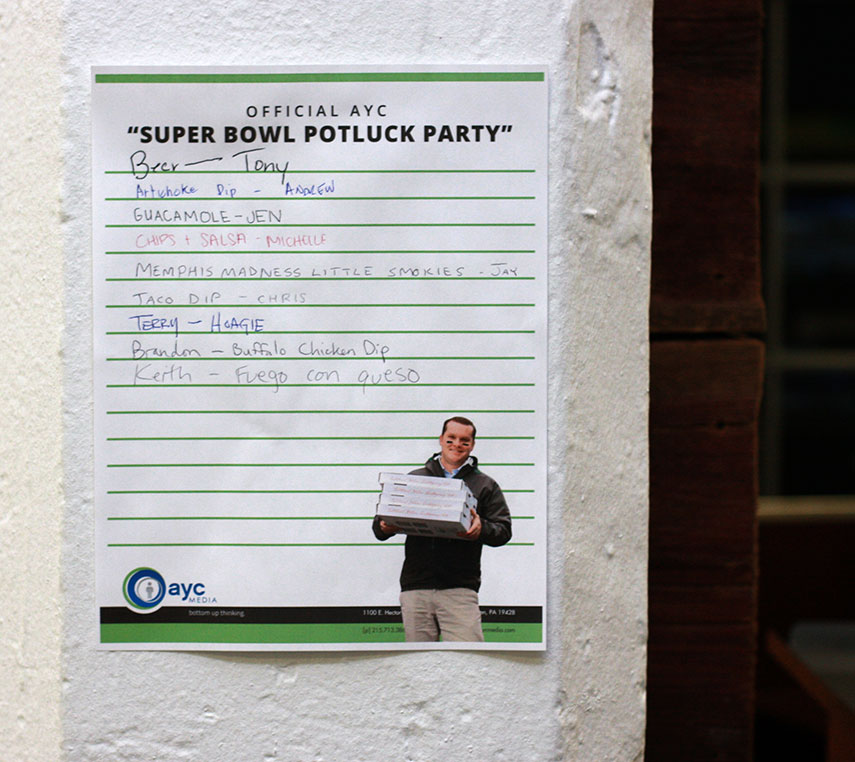 OFFICIAL AYC
“SUPER BOWL POTLUCK PARTY”
Beer — Tony
Artichoke Dip - ANDREW
GUACAMOLE - JEN
CHIPS + SALSA - MICHELLE
MEMPHIS MADNESS LITTLE SMOKIES - JAY
TACO DIP - CHRIS
TERRY - HOAGIE
Brandon - Buffalo Chicken Dip
Keith - Fuego con queso
ayc
MEDIA
bottom up thinking.
1100 E. Hector PA 19428